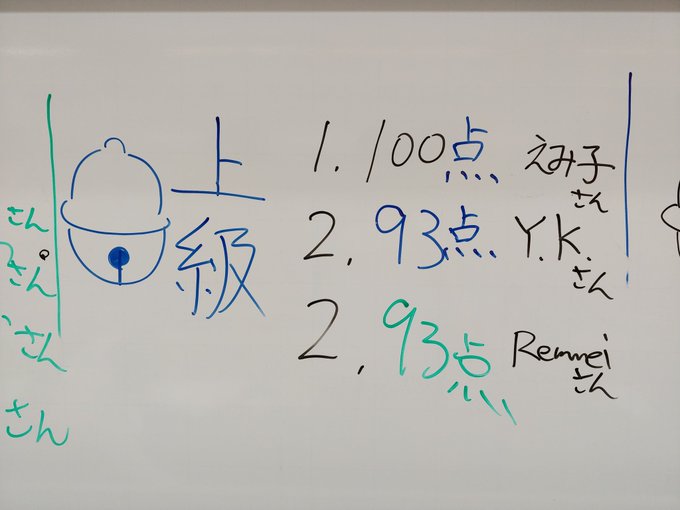 さん
さん
さん
さん
上級
1. 100点 えみ子さん
2. 93点 Y.K.さん
2. 93点 Renmeiさん